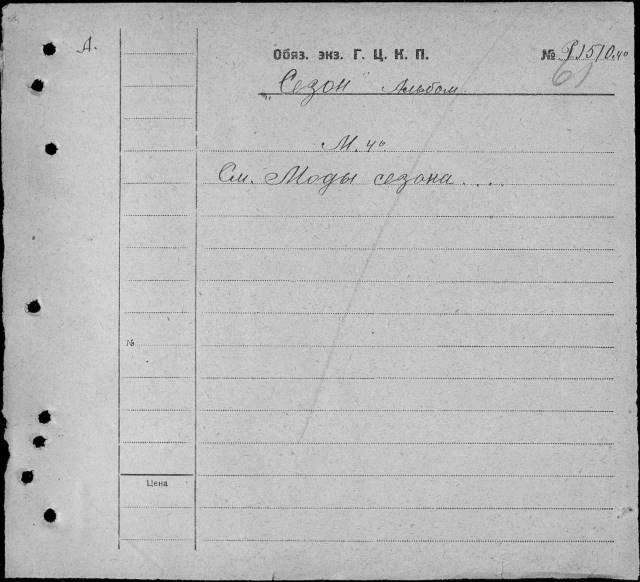 А.
Обяз. экз. Г. Ц. К. П. № P1510.4°
61
„Сезон“ Альбом.
М. 4°
См. Моды сезона ....
№
Цена